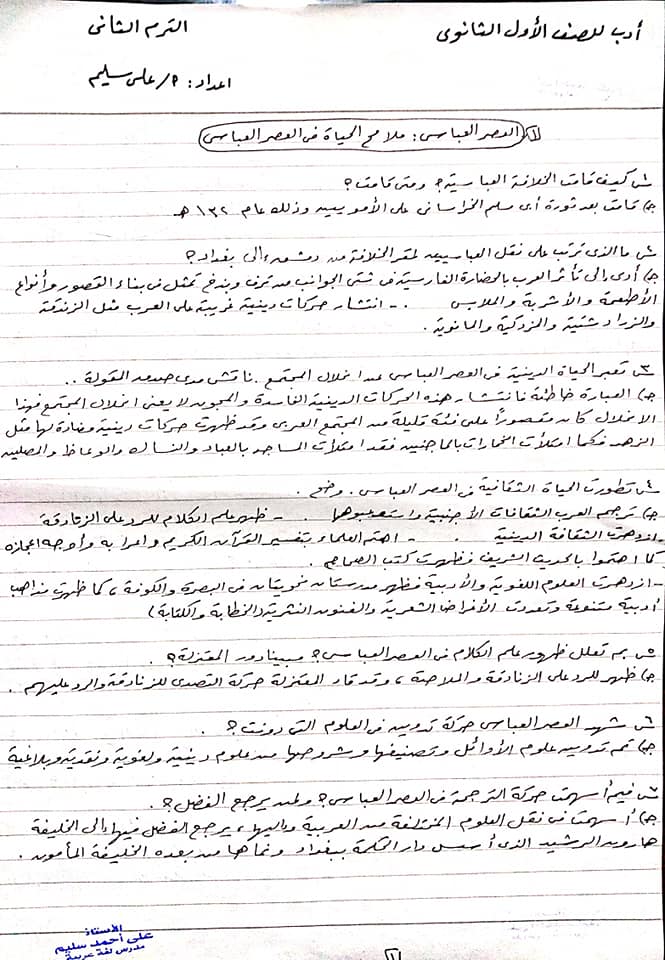 أدب للصف الأول الثانوى
الترم الثانى
اعداد: م/ على سليم
١ العصر العباسى: ملامح الحياة فى العصر العباسى
س كيف قامت الخلافة العباسية؟ ومتى قامت؟
جـ) قامت بعد ثورة أبى مسلم الخراسانى على الأمويين وذلك عام ١٣٢ هـ
س ما الذى ترتب على نقل العباسيين لمقر الخلافة من دمشق إلى بغداد؟
جـ) أدى إلى تأثر العرب بالحضارة الفارسية فى شتى الجوانب من ترف وبذخ تمثل فى بناء القصور وأنواع
الأطعمة والأشربة والملابس . - انتشار حركات دينية غريبة على العرب مثل الزندقة
والزرادشتية والمزدكية والمانوية .
س تعبر الحياة الدينية فى العصر العباسى عن انحلال المجتمع . ناقش مدى صدق المقولة ..
جـ) العبارة خاطئة فانتشار هذه الحركات الدينية الفاسدة والمجون لا يعنى انحلال المجتمع فهذا
الانحلال كان مقصوراً على فئة قليلة من المجتمع العربى وقد ظهرت حركات دينية مضادة لها مثل
الزهد فكما امتلأت الخمارات بالماجنين فقد امتلأت المساجد بالعباد والنساك والوعاظ والمصلين
س تطورت الحياة الثقافية فى العصر العباسى . وضح .
جـ) ترجم العرب الثقافات الأجنبية واستوعبوها . - ظهر علم الكلام للرد على الزنادقة
- ازدهرت الثقافة الدينية . - اهتم العلماء بتفسير القرآن الكريم وإعرابه وأوجه إعجازه
كما اهتموا بالحديث الشريف فظهرت كتب الصحاح .
- ازدهرت العلوم اللغوية والأدبية فظهر مدرستان نحويتان فى البصرة والكوفة ، كما ظهرت مذاهب
أدبية متنوعة وتعددت الأغراض الشعرية والفنون النثرية (الخطابة والكتابة)
س بم تعلل ظهور علم الكلام فى العصر العباسى؟ مبينا دور المعتزلة؟ .
جـ) ظهر للرد على الزنادقة والملاحدة ، وقد قاد المعتزلة حركة التصدى للزنادقة والرد عليهم .
س شهد العصر العباسى حركة تدوين فى العلوم التى دونت؟ .
جـ) تم تدوين علوم الأوائل وتصنيفها وشروحها من علوم دينية ولغوية ونقدية وبلاغية
س فيم أسهمت حركة الترجمة فى العصر العباسى؟ ولمن يرجع الفضل؟ .
جـ) أسهمت فى نقل العلوم المختلفة من العربية وإليها ، يرجع الفضل فيها إلى الخليفة
هارون الرشيد الذى أسس دار الحكمة ببغداد ونماها من بعده الخليفة المأمون .
الأستاذ
على أحمد سليم
مدرس لغة عربية
١